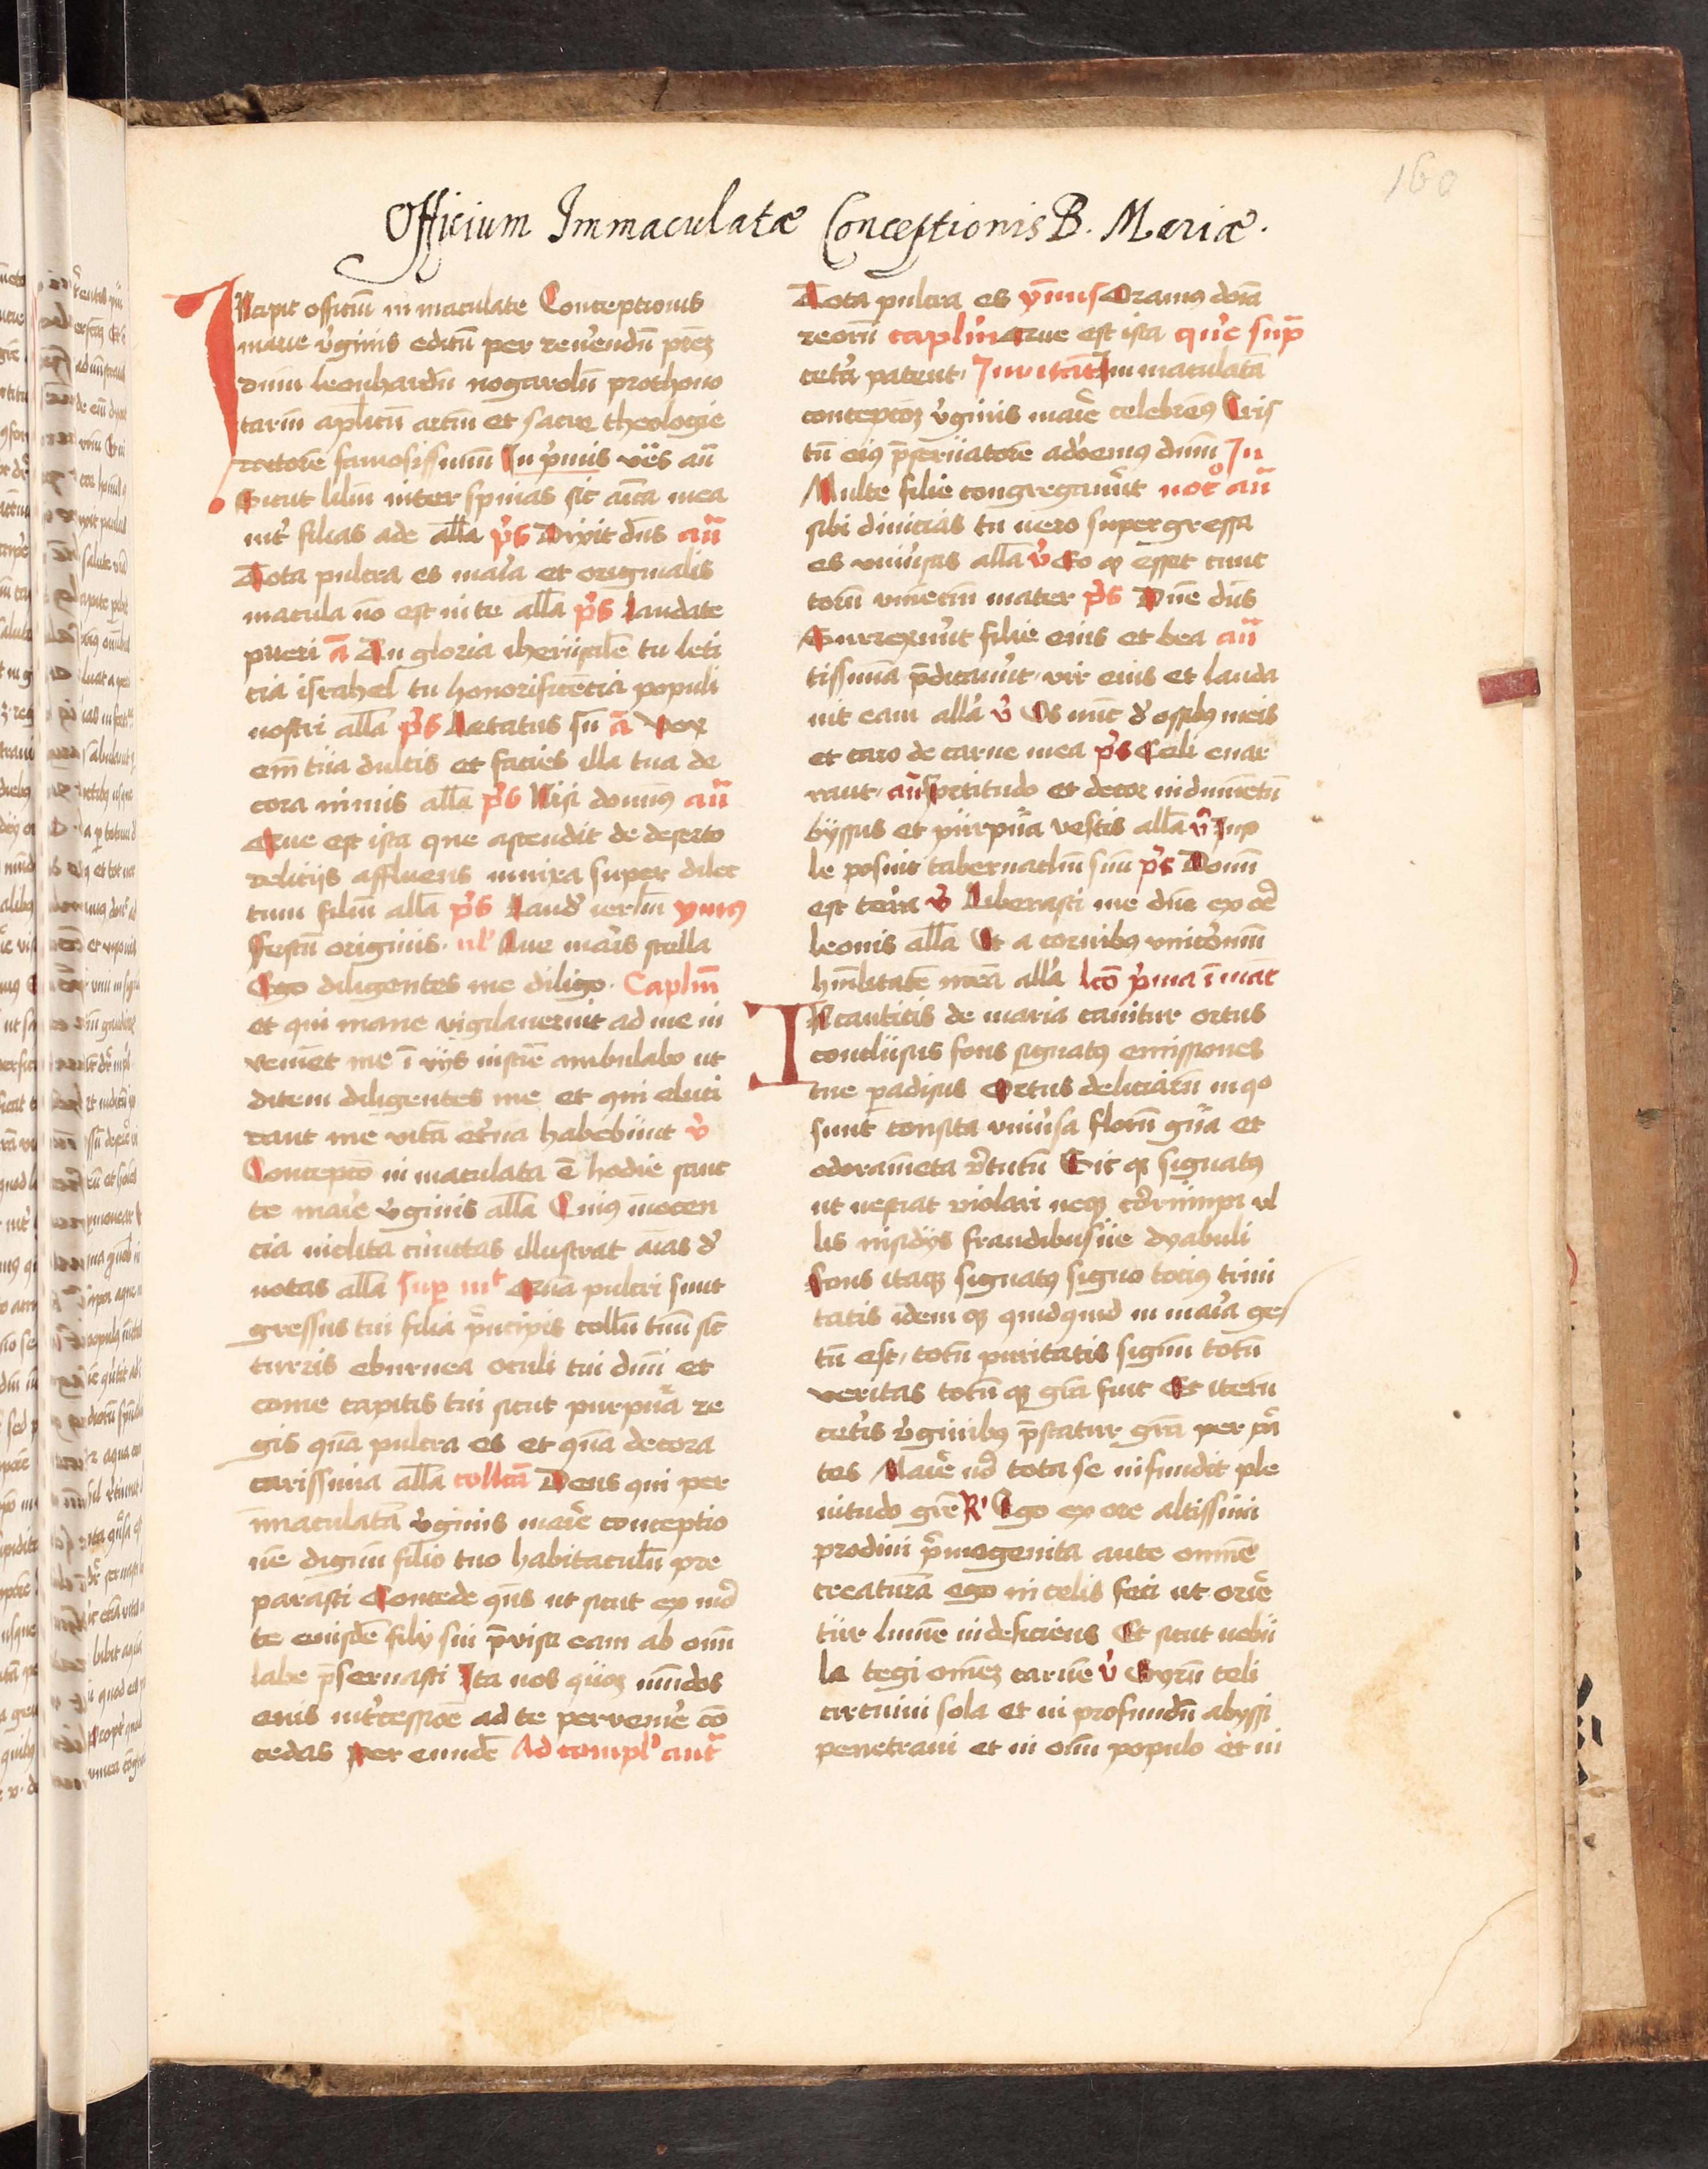 160
Officium Immaculatæ Conceptionis B. Mariæ.
INcipit officiū in maculate Conceptionis
marie v̓ginis editū per reu̓endū prēꝫ
dnm̄ leonhardū nogarolū prothono
tariū aplicū artiū et sacre theologie
rectorē famosissimū In p̓mis ves̄ an̄
Sicut liliū inter spinas sic aīca mea
int̓ filias ade all̄a p̓s Dixit dn̄s an̄
Tota pulcra es mar̓ia et originalis
macula nō est in te all̄a p̓s laudate
pueri ā Tu gloria iherusalē tu leti
cia israhel tu honorificētia populi
nostri all̄a p̓s Letatus sū ā Vox
em̄ tua dulcis et facies illa tua de
cora nimis all̄a p̓s Nisi domin9 an̄
Que est ista que ascendit de deserto
delicijs affluens innixa super dilec
tum filiū all̄a p̓s Laud̓ ierlm̄ ymn9
Festū originis. ul̓ Aue mar̓is stella
Ego diligentes me diligo. Caplm̄
et qui mane vigilauerint ad me in
veniēt me ī vijs iusticiē ambulabo ut
ditem diligentes me et qui eluci
dant me vitā et̓na habebunt v̓
Conceptō in maculata ē hodie sanc
te mar̓ie v̓ginis all̄a Cuius īnocen
cia inclita cunctas illustrat aīas d̓
uotas all̄a sup mt Quā pulcri sunt
gressus tui filia p̓ncipis collū tuū sic̄
turris eburnea oculi tui diīni et
come capitis tui sicut purpura re
gis quā pulcra es et quā decora
carissima all̄a collcā Deus qui per
īmaculatā v̓ginis mar̓ie conceptio
nē dignū filio tuo habitaculū pre
parasti Concede qs̄ ut sicut ex mor
te eiusdē filij sui p̄uisa eam ab omī
labe p̄seruasti Ita nos quoqꝫ mūdos
eius int̓cessiōe ad te peruenir̓e cō
cedas per eundē Ad compl̓ ant̄
Tota pulcra es ymnus Oramus dn̄a
reorū caplm̄ Que est ista que sup̄
cet̓a patent. Inuitāt Inmaculatā
conceptōꝫ v̓ginis mar̓ie celebrem9 Cris
tū ei9 p̄seruatorē adorem9 dnm̄ In
Multe filie congregauer̓t noc̊ an̄
sibi diuicias tu uero supergressa
es vniu̓sas all̄a v̓ Eo qꝫ esset cunc
torū viuēciū mater p̓s Dn̄e dn̄s
Surrexerūt filie eius et bea an̄
tissimā p̄dicauer̓t vir eius et lauda
uit eam all̄a v̓ Os nūc d̓ ossibꝰ meis
et caro de carne mea p̓s Celi enar
rant. an̄ Fortitudo et decor indumētū
byssus et purpura vestis all̄a v̓ In so
le posuit tabernaclm̄ suū p̓s Domi
est terra v̓ Liberasti me dn̄e ex ore
leonis all̄a Et a cornibꝰ vnicorniū
hūilitatē meā all̄a lcō p̓ma ī mat̄
IN canticis de maria canitur ortus
conclusus fons signatꝰ emissiones
tue paradisus Ortus deliciarū in qo
sunt consita vniu̓sa florū gn̄a et
odoramēta v̓tutū Sic qꝫ signatꝰ
ut nesciat violari neqꝫ corrumpi vl
lis insidijs fraudibusue dyaboli
Fons itaqꝫ signatꝰ signo toci9 trini
tatis idem qꝫ quidquid in mar̓ia ges
tū est, totū puritatis signū totū
veritas totū qꝫ grā fuit Et iteru
cet̓is v̓ginibꝰ p̄statur grā per par
tes Marie uo tota se infundit ple
nitudo grē R̓ Ego ex ore altissimi
prodiui p̓mogenita ante omnē
creaturā ego in celis feci ut orire
tur lumē indeficiens Et sicut nebu
la tegi omēꝫ carnē v̓ Gyrū celi
circuiui sola et in profundū abyssi
penetraui et in omi populo et in